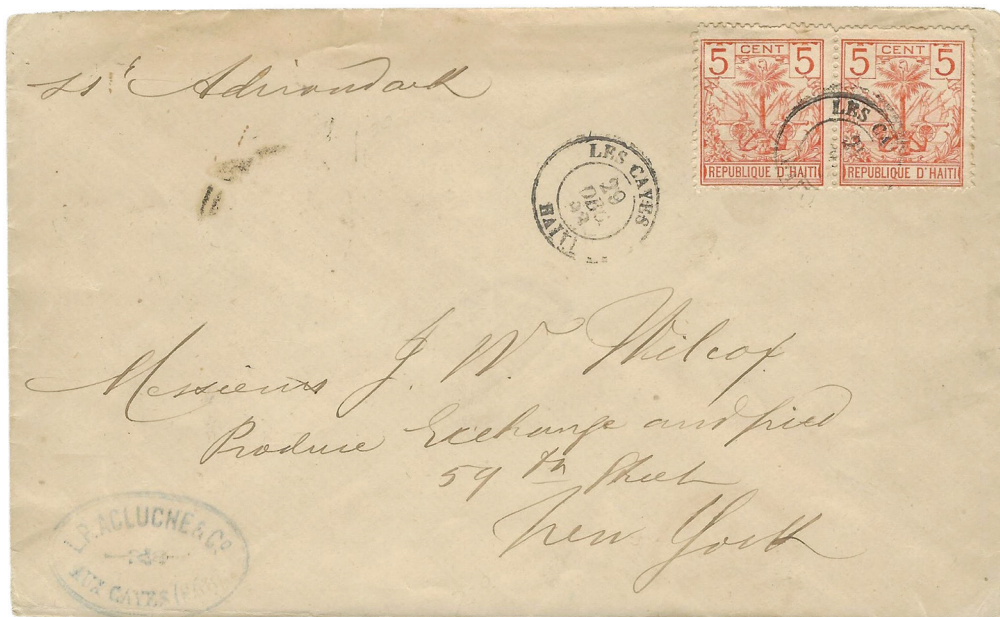 ss' Adirondack
5 CENT 5
REPUBLIQUE D'HAITI
5 CENT 5
REPUBLIQUE D'HAITI
LES CA
LES CAYES
29
HAITI
Messieurs J. W. Wilcox
Produce Exchange and pied
59 th Street
New York
ACLUCHE & Co
AUX CAYES